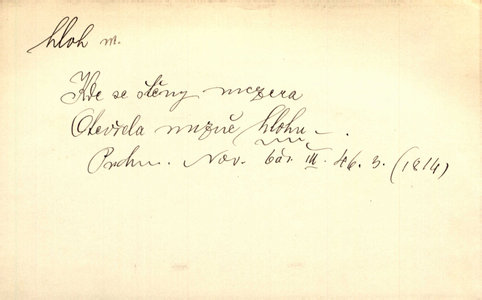 hloh m.
Kde se stěny mezera
Otevřela mizně hlohu -.
Puchm. Nov. bás. III. 46. 3. (1814)